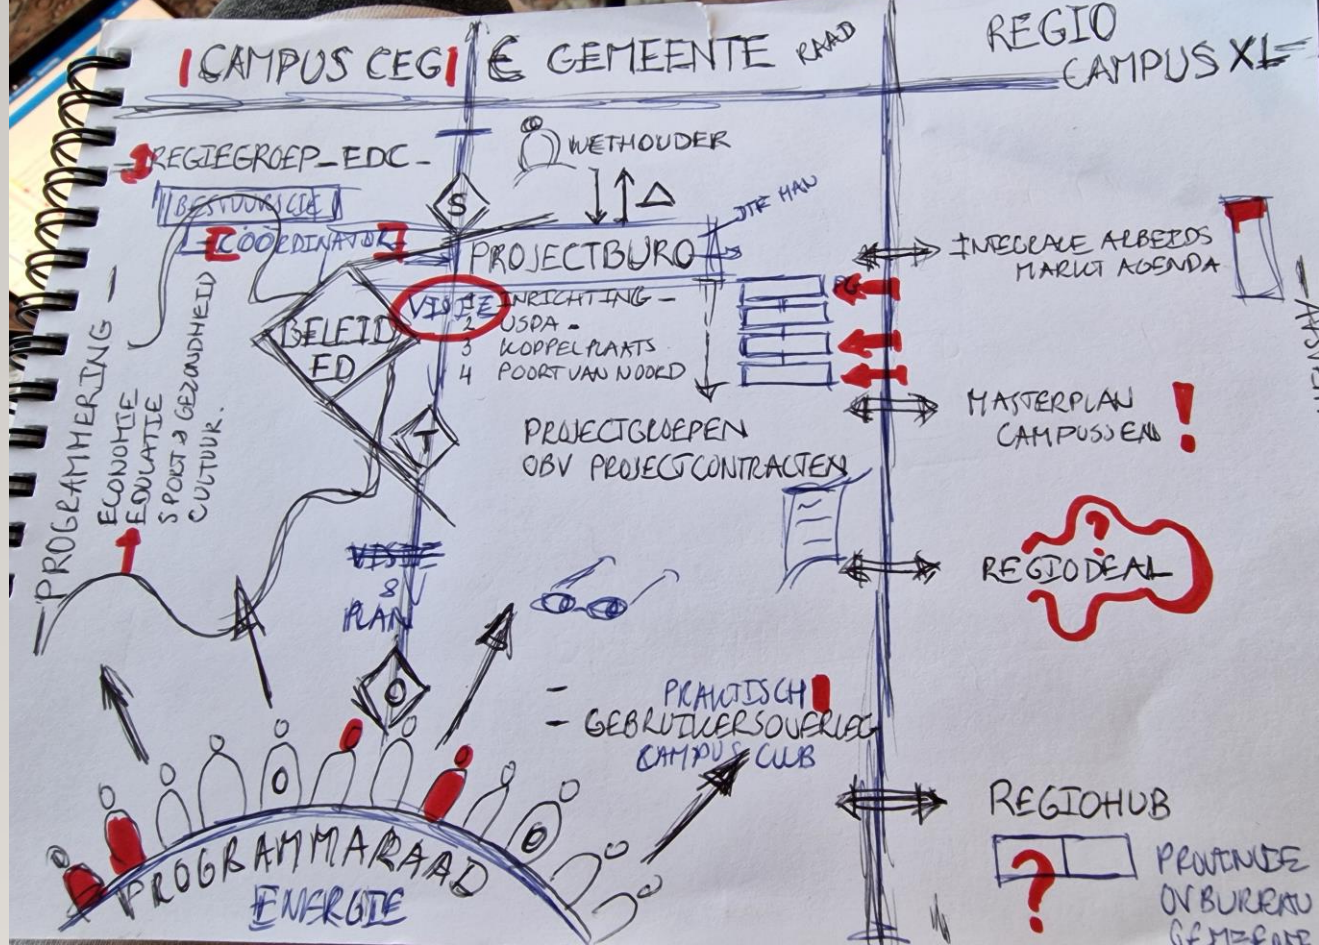 CAMPUS CEG
€ GEMEENTE RAAD
REGIO
CAMPUS XL
REGIEGROEP - EDC -
BESTUURSCIE
COÖRDINATOR
WETHOUDER
S
PROJECTBURO
VISIE
1 INRICHTING -
2 USPA -
3 KOPPELPLAATS
4 POORT VAN NOORD
PROJECTGROEPEN
OBV PROJECTCONTRACTEN
BELEID
ED
T
- PROGRAMMERING -
ECONOMIE
EDUCATIE
SPORT & GEZONDHEID
CULTUUR.
VISIE
&
PLAN
O
- PRAKTISCH
- GEBRUIKERSOVERLEG
CAMPUS CLUB
PROGRAMMARAAD
ENERGIE
INTEGRALE ARBEIDS
MARKT AGENDA
MASTERPLAN
CAMPUSSEN !
?
REGIODEAL
REGIOHUB
?
PROVINCIE
OV BUREAU
GEMEENTE